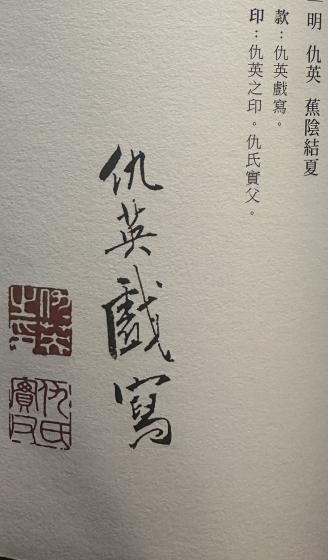 明 仇英 蕉陰結夏
款：仇英戲寫。
印：仇英之印。仇氏實父。
仇英戲寫
仇英之印
仇氏實父